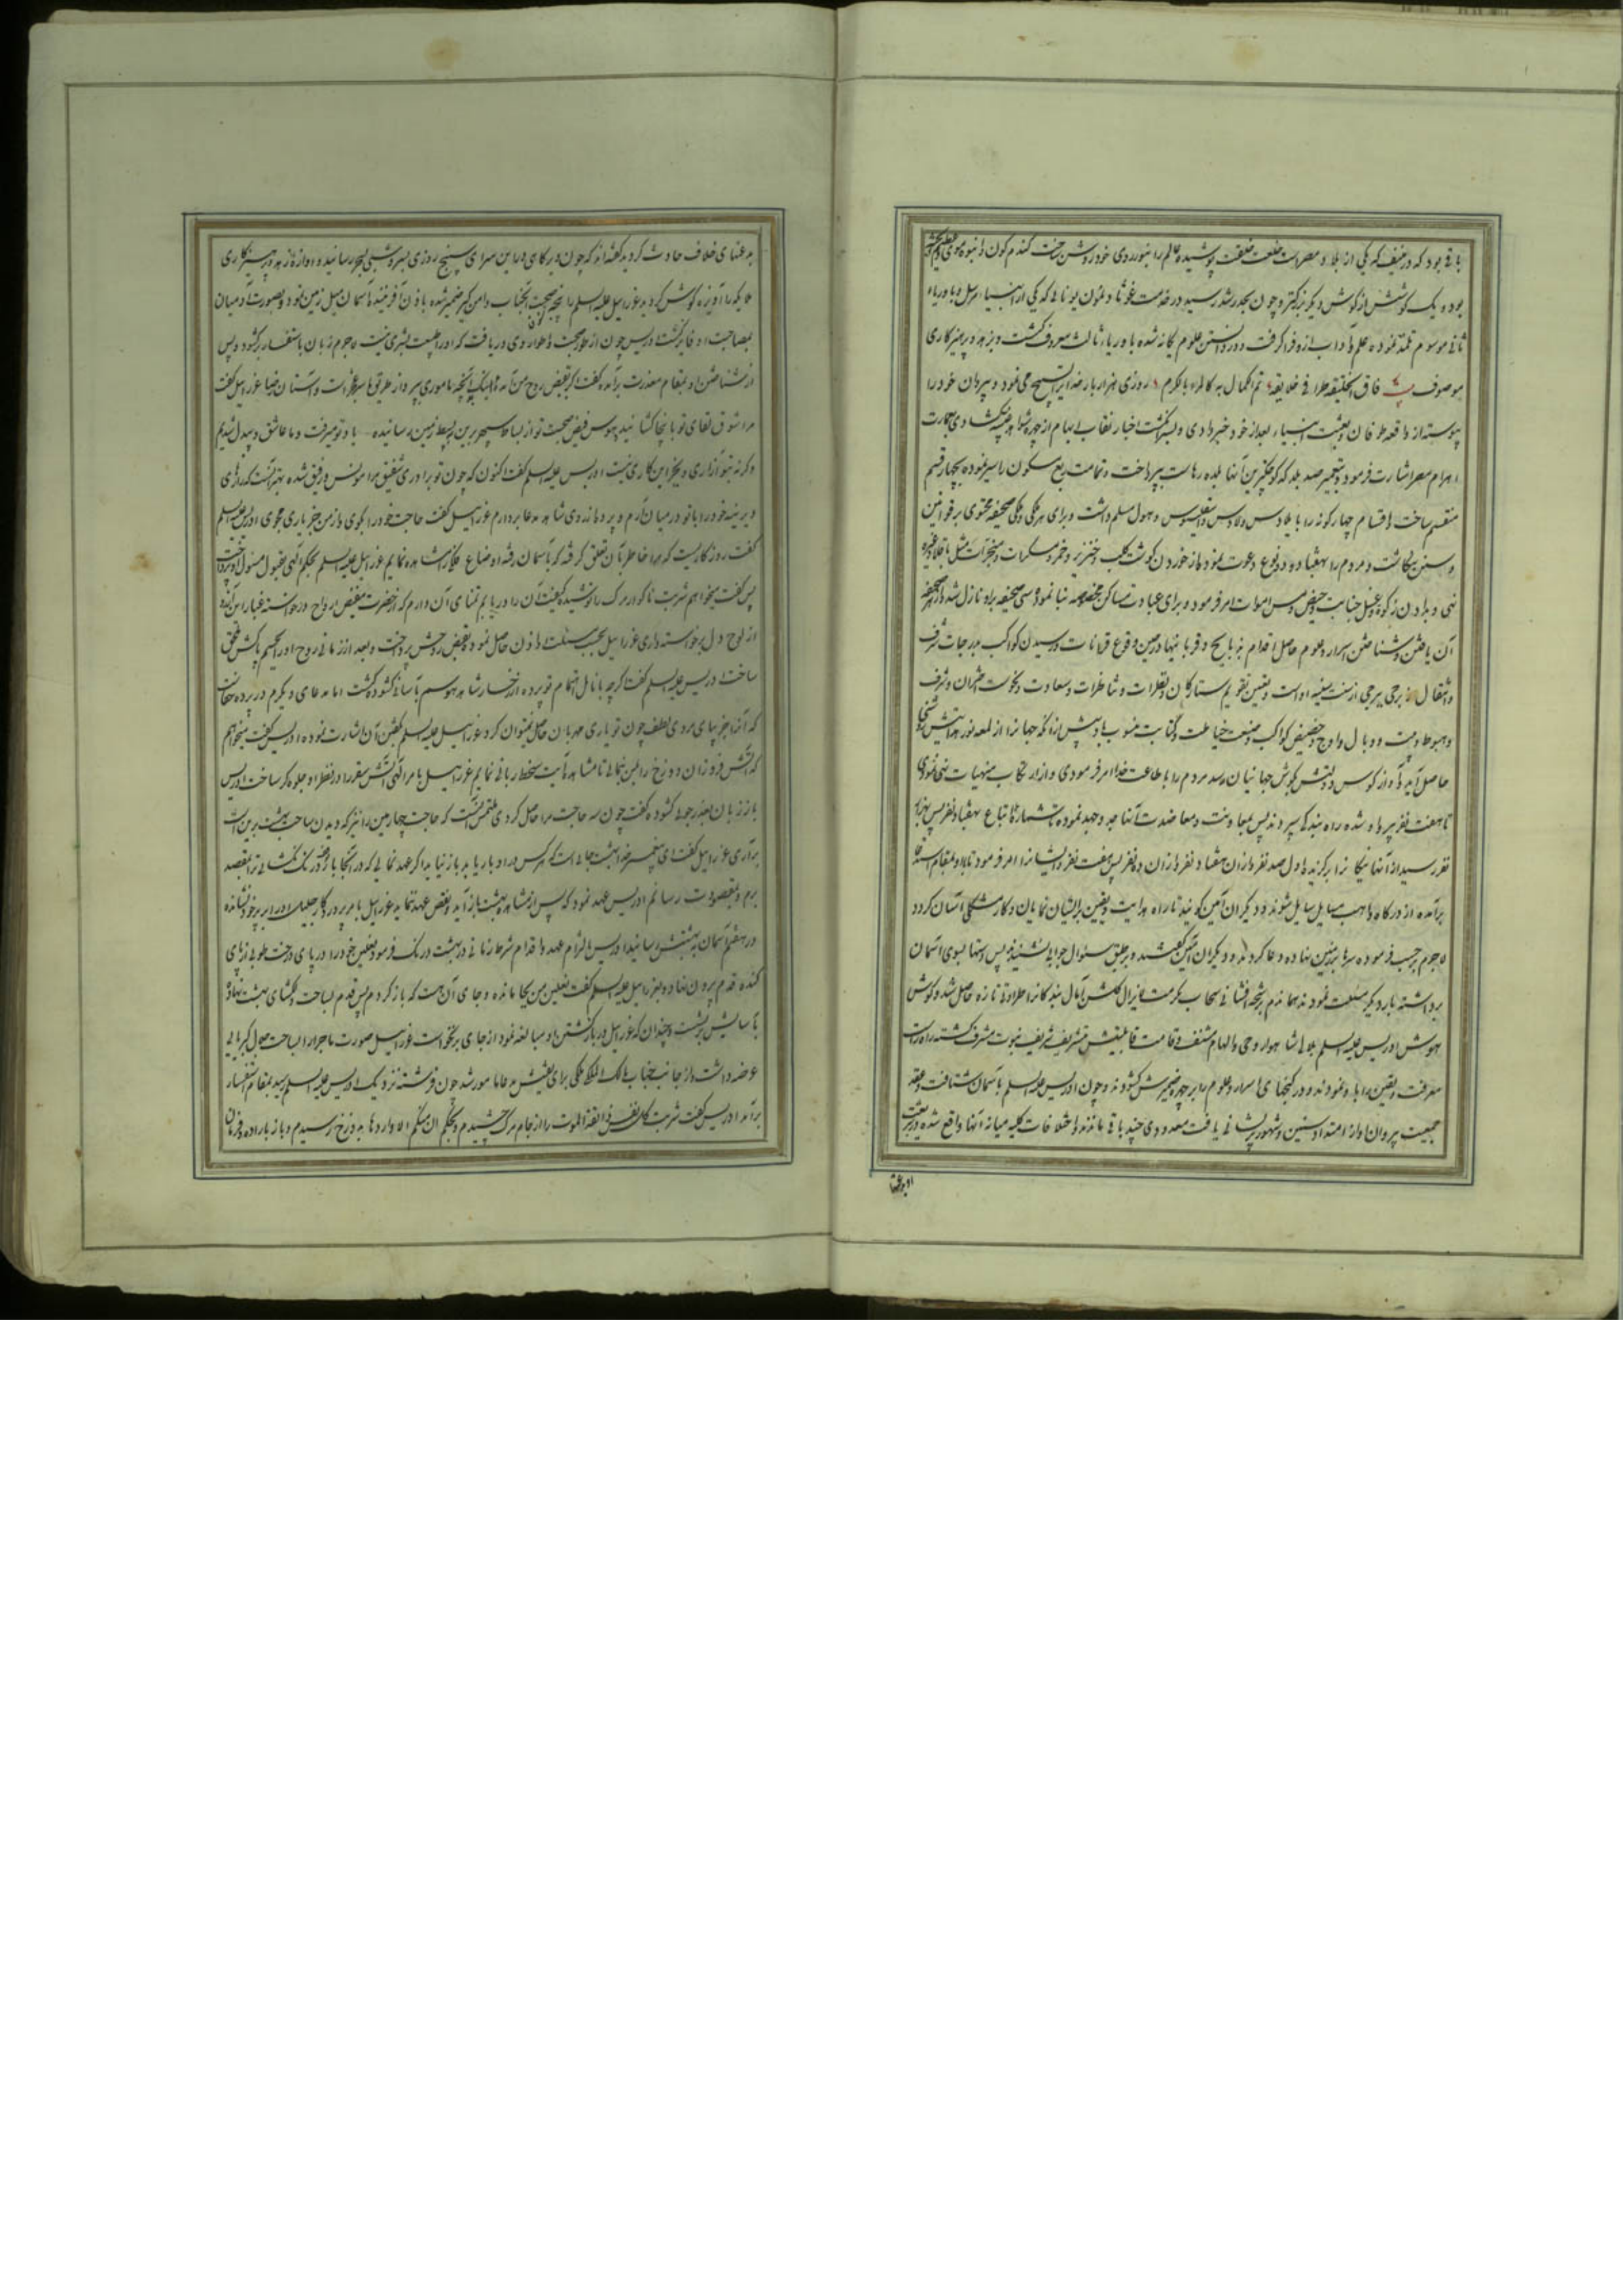 باقی بود که در منیف که یکی از بلاد مصرست خلعت خلقت پوشیده عالم را بنور روی خود روشن ساخت گندم گون و انبوه موی
بوده یک گوشش از گوش دیگر بزرگتر و چون بحد رشد رسید در خدمت غوثا ذیمون یونانی که یکی از انبیاء مرسل و باوریاء
ثانی موسوم تلمذ نموده علم و آداب ازو فرا گرفت و در دانستن علوم یگانه شده باوریاء ثالث معروف گشت و بزهد و پرهیزکاری
موصوف فاق الخلیقه طرا فی خلایقه تم الکمال به کالمراء بالکرم روزی هزار بار خدا را تسبیح می نمود و پیروان خود را
پیوسته از واقعه طوفان و بعثت انبیاء بعد از خود خبر دادی و بسرگذشت اخبار نقاب ابهام از چهره گشادی بعمارت
اهرام مصر اشارت فرمود و بتعمیر صد بلد که کوچکترین آنها بلده رهاست پرداخت و تمامت ربع مسکون را سیر نموده بچهار قسم
منقسم ساخت و اقسام چهارگونه را بایلاوس و لاوس و اسقلینوس و هول مسلم داشت و برای هر یکی صحیفه محتوی بر قوانین
وسنن بنگاشت و مردم را بهفتاد و دو نوع دعوت نمود و از خوردن گوشت کلب و خنزیر و خمر و مسکرات
نهی و بدادن زکوة و غسل جنابت و حیض و مس اموات امر فرمود و برای عبادت مساکن مخصوصه بنا نمود و سی صحیفه براو نازل شد
آن یافتن و شناختن اسرار علوم حاصل اقدام بذبایح و قربانیها در حین وقوع قرانات و رسیدن کواکب بدرجات شرف
و انتقال از برجی ببرجی از سنت سنیه اوست و تعیین تقویم ستارگان و نظرات و تناظرات و سعادت و نحوست اختران و شرف
و هبوط و بیت و وبال و اوج و حضیض کواکب و صنعت خیاطت و کتابت منسوب باو پیش از آنکه جهانرا از لمعه نور هدایتش
حاصل آید و آواز کوس دولتش بگوش جهانیان رسد مردم را باطاعت خدا امر فرمودی و از ارتکاب منهیات نهی نمودی
تا هفت نفر پیرو او شده راه بندگی سپردند پس بمعاونت و معاضدت آنها جد و جهد نموده شماره اتباع بهفتاد نفر پس بهزار
نفر رسید از آنها نیکانرا برگزیده اول صد نفر و از آن هفتاد نفر و از آن ده نفر پس هفت نفر و ایشانرا امر فرمود تا با او بمقام استدعا
برآمده از درگاه واهب مسایل سایل شوند و دیگران آمین گویند تا راه هدایت و یقین بر ایشان نمایان و کار مشکل آسان گردد
لاجرم برحسب فرموده سرها بر زمین نهاده دعا کردند و دیگران آمین گفتند و بر طبق سئوال جوابی نشنیدند پس دستها بسوی آسمان
برداشته بار دیگر مسئلت نمودند همان دم برشحه افشانی سحاب مکرمت لایزال گلشن آمال بندگانرا طراوتی تازه حاصل شد و گوش
هوش ادریس علیه السلم بلالی شاهوار وحی و الهام مشنف و قامت قابلیتش بتشریف شریف نبوت مشرف گشته راه راست
معرفت و یقین را باو نمودند و در گنجهای اسرار و علوم را بر چهره ضمیرش گشودند و چون ادریس علیه السلم بآسمان شتافت و عقد
جمعیت پیروان او از امتداد سنین و شهور پریشانی یافت معدودی چند باقی ماندند و اختلافات کلیه میانه آنها واقع شده
بدعتهای خلاف حادث گردید گفته اند که چون دیرگاهی در این سرای سپنج روزی بسر و شبی بسحر رسانید و آوازه زهد و پرهیزکاری
ملایکه را آویزه گوش گردید عزراییل علیه السلم را پنجه صحبت آنجناب دامن گیر ضمیر شده باذن آفریننده آسمان میل زمین نمود و بصورت آدمیان
بمصاحبت او فایز گشت ادریس چون از طرز صحبت و اطوار وی دریافت که او را طینت بشری نیست لاجرم زبان باستفسار برگشود و پس
از شناختن او بمقام معذرت برآمده گفت اگر بقبض روح من آمده بی اهنگ بانچه ماموری پرداز طریق ما سر بخط رضاست و آستان رضا عزراییل گفت
مرا شوق لقای تو باینجا کشانید و هوس فیض صحبت تو از لباط سپهر برین ببسیط زمین رسانیده با تو میرفت و ما عاشق و بیدل شدیم
وگرنه بتو آزاری و بجز این کاری نیست ادریس علیه السلم گفت اکنون که چون تو برادری شفیق مرا مونس و رفیق شده بهتر آنست که رازهای
دیرینه خود را با تو در میان آرم و پرده از روی شاهد مدعا بردارم عزراییل گفت حاجت خود را بگوی و از من بجز یاری مجوی ادریس علیه السلم
گفت روزگاریست که مرا خاطر بآن تعلق گرفته که بآسمان رفته اوضاع افلاک را مشاهده نمایم عزراییل علیه السلم بحکم الهی بقبول مسئول او پرداخت
پس گفت میخواهم شربت ناگوار مرگ را نوشیده کیفیت آن را دریابم تمنای آن دارم که از حضرت مفیض ارواح درخواسته غبار این آرزو
از لوح دل برخواسته داری عزراییل بحسب مسئلت او اذن حاصل نموده بقبض روحش پرداخت و بعد از زمانی روح او را بجسم پاکش ملحق
ساخت ادریس علیه السلم گفت اگرچه بانامل اهتمام تو پرده از رخسار شاهد هوسم بآسانی گشوده گشت اما مدعای دیگرم در پرده خفاست
که آنرا بجز پای مردی لطف چون تو یاری مهربان حاصل نمیتوان کرد عزراییل علیه السلم بگفتن آن اشارت نموده ادریس گفت میخواهم
که آتش فروزان دوزخ را بمن بنمائی تا مشاهد آیت سخط ربانی نمایم عزراییل بامر الهی آتش سقر را در نظر او جلوه گر ساخت ادریس
باز زبان بعذرجوئی گشوده گفت چون سه حاجت مرا حاصل کردی ملتمس آنست که حاجت چهارمین را نیز که دیدن ساحت بهشت برین است
برآری عزراییل گفت ای پیغمبر خدا بهشت جائی است که هر کس در او بار یابد باز نیاید اگر عهد نمائی که در آنجا بازخود درنگ نگشائی ترا بمقصد
برم و بمقصودت رسانم ادریس عهد نمود که پس از مشاهده بهشت باز آید و نقض عهد ننماید عزراییل بامر پروردگار جلیل او را بر پر خود نشانده
در هفتم آسمان به بهشتش رسانید ادریس بالتزام عهد و اقدام شرط زمانی در بهشت درنگ فرمود نعلین خود را در پای درخت طوبی از پای
کنده قدم برون نهاد و بعزراییل علیه السلم گفت نعلین من بجا مانده و جای آن هست که بازگردم پس قدم بساحت دلگشای بهشت نهاده
بآسایش بنشست و چندان که عزراییل در بازگشتن او مبالغه نمود از جای برنخواست عزراییل صورت ماجرا را بساحت جلال کبریائی
عرضه داشت و از جانب جناب مالک الملک ملکی برای تفتیش مدعا مامور شد چون فرشته نزدیک ادریس علیه السلم رسید بمقام استفسار
برآمد ادریس گفت شربت کل نفس ذائقة الموت را از جام مرگ چشیدم و بحکم ان منکم الا واردها بدوزخ رسیدم و باز بارادهٔ یزدان